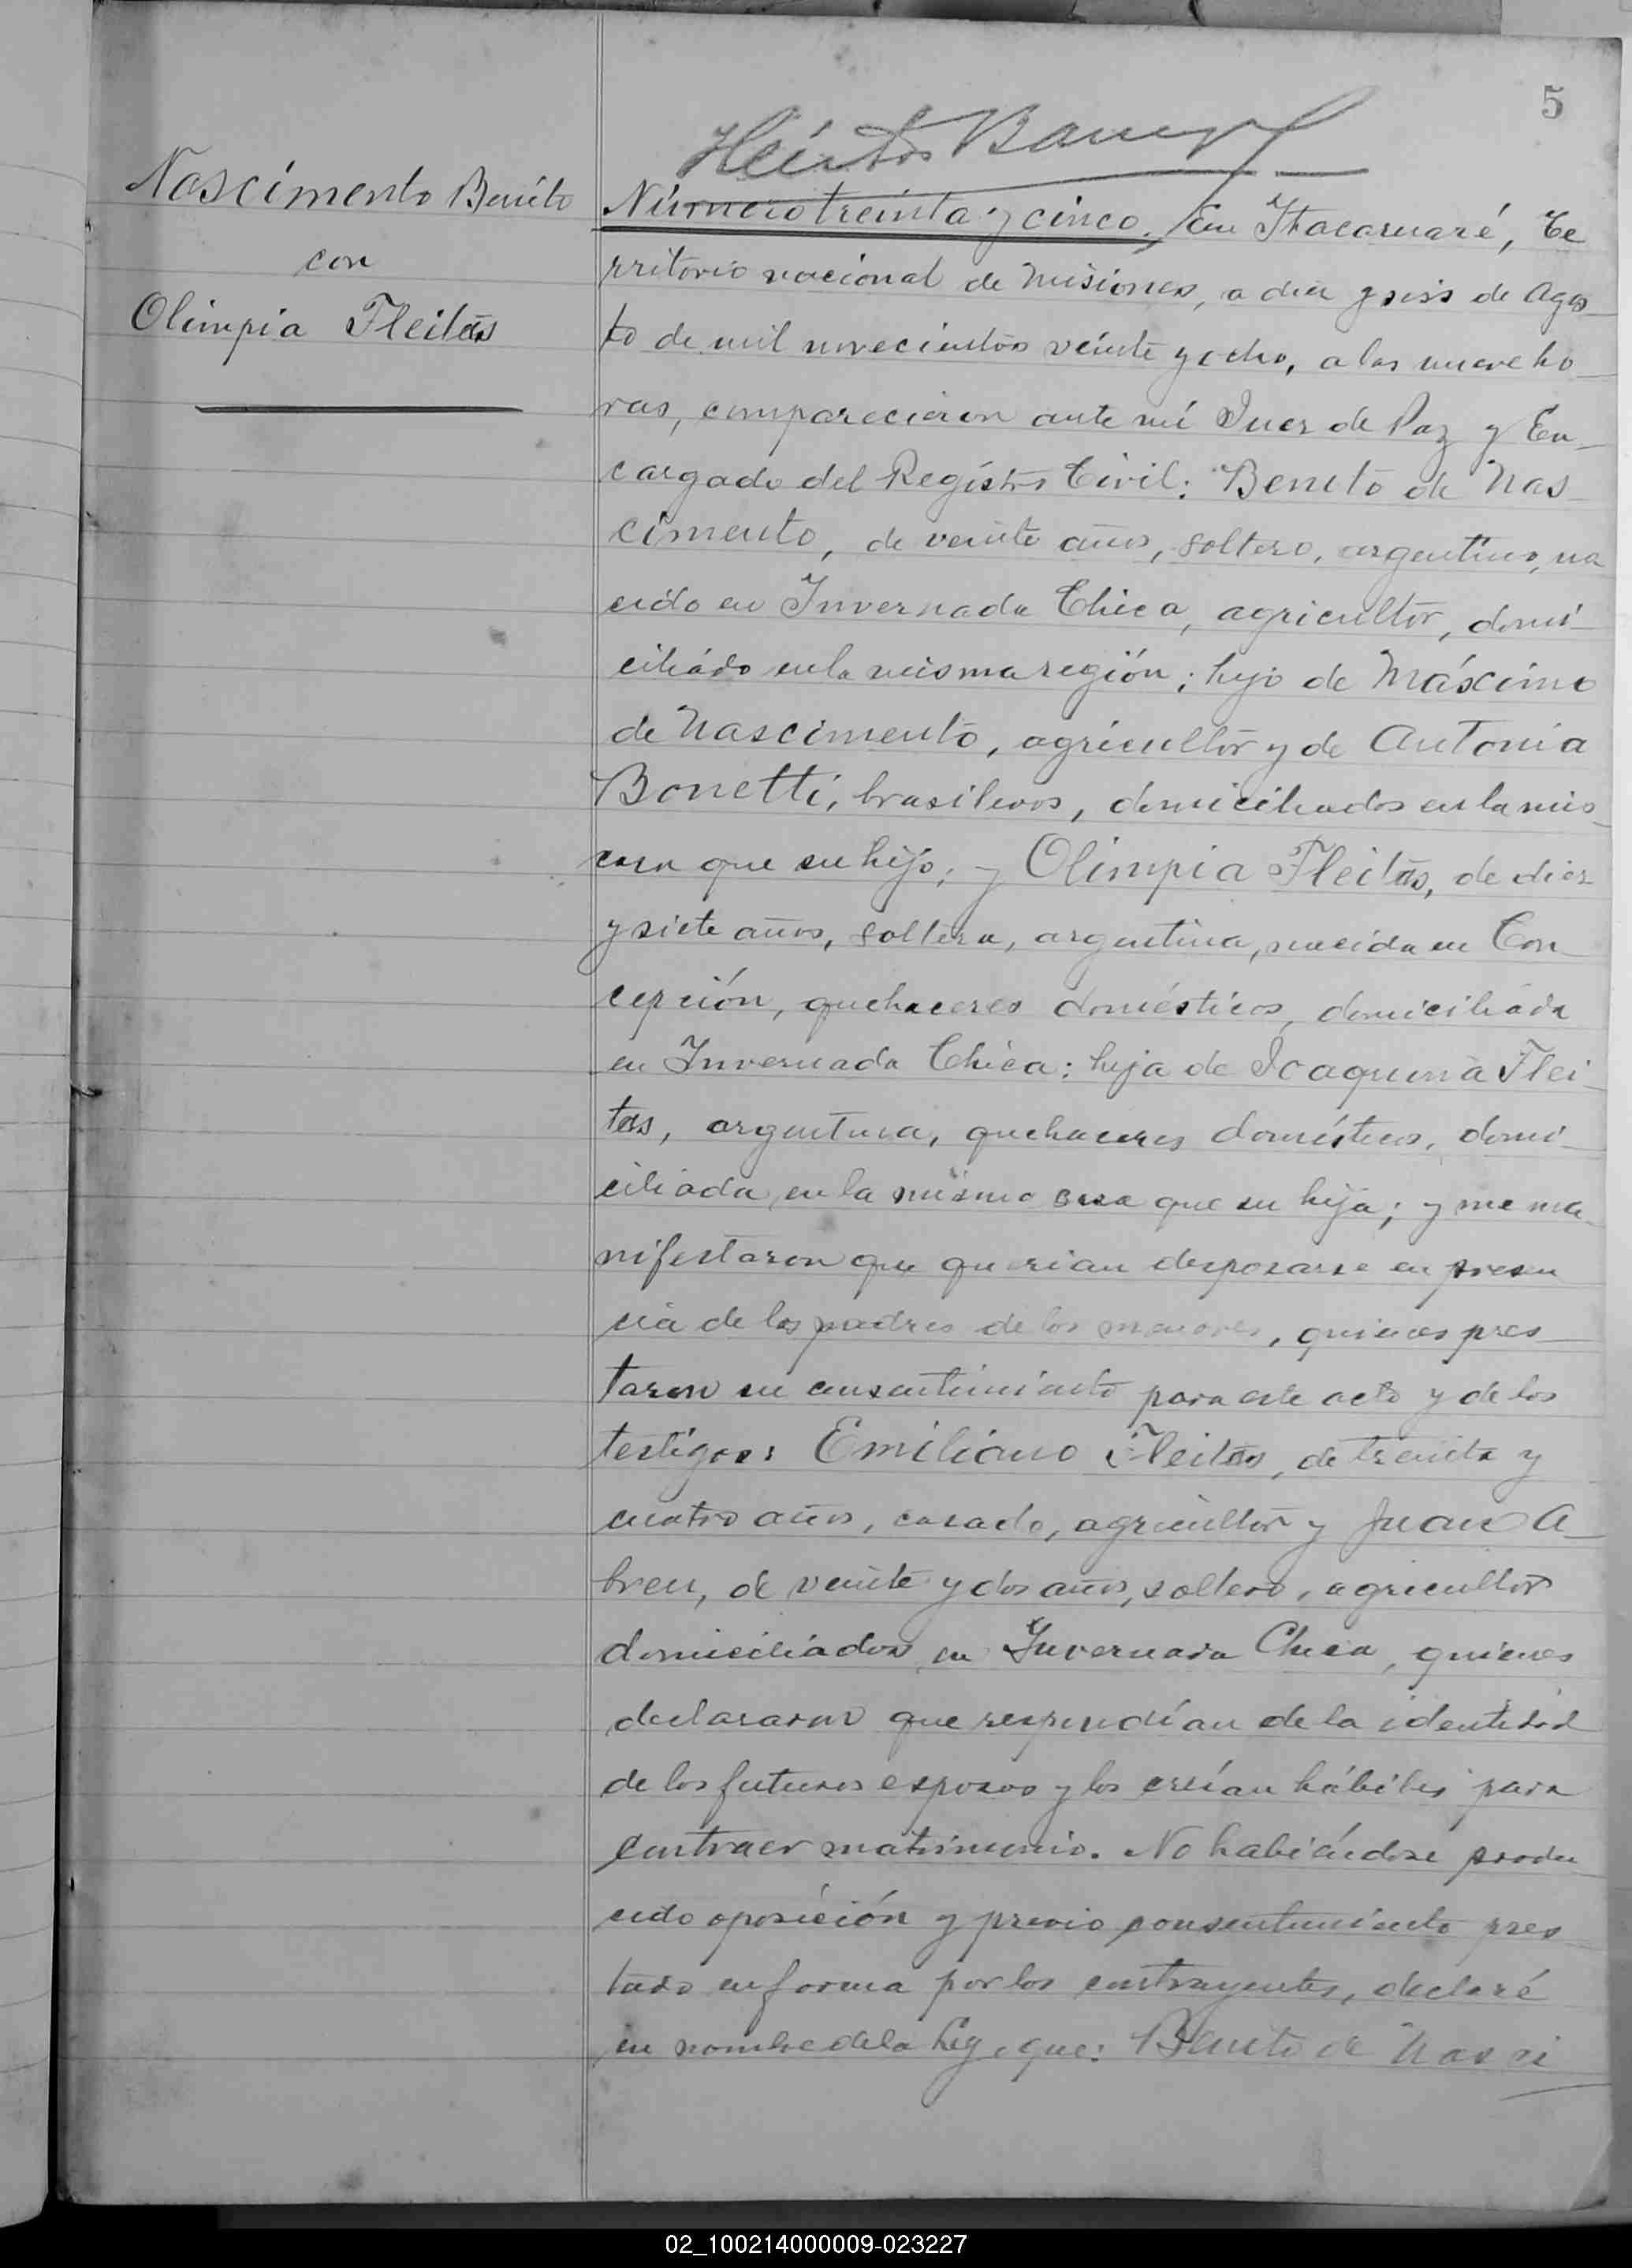 5
Nascimento Benito
con
Olimpia Fleitas
Número treinta y cinco. En Itacaruaré, Te
rritorio nacional de Misiones, a diez y seis de Agos_
to de mil novecientos veinte y ocho, a las nueve ho_
ras, comparecieron ante mí Juez de Paz y En_
cargado del Registro Civil: Benito de Nas_
cimento, de veinte años, soltero, argentino, na
cido en Invernada Chica, agricultor, domi_
ciliádo en la misma región; hijo de Máscimo
de Nascimento, agricultor y de Antonia
Bonetti, brasileros, domiciliados en la mis_
casa que su hijo; y Olimpia Fleitas, de diez
y siete años, soltera, argentina, nacida en Con_
cepción, quehaceres domésticos, domiciliada
en Invernada Chica: hija de Joaquina Flei_
tas, argentina, quehaceres domésticos, domi_
ciliada en la misma casa que su hija; y me ma_
nifestaron que querian desposarse en presen
cia de los padres de los menores, quienes pres_
taron su consentimiento para este acto y de los
testigos: Emiliano Fleitas, de treinta y
cuatro años, casado, agricultor y Juan A_
breu, de veinte y dos años, soltero, agricultor
domiciliados en Invernada Chica, quienes
declararon que respondían de la identidad
de los futuros esposos y los creían hábiles para
contraer matrimonio. No habiéndose produ_
cido oposición y previo consentimiento pres_
tado en forma por los contrayentes, declaré
en nombre de la Ley, que: Benito de Nasci
02_100214000009-023227